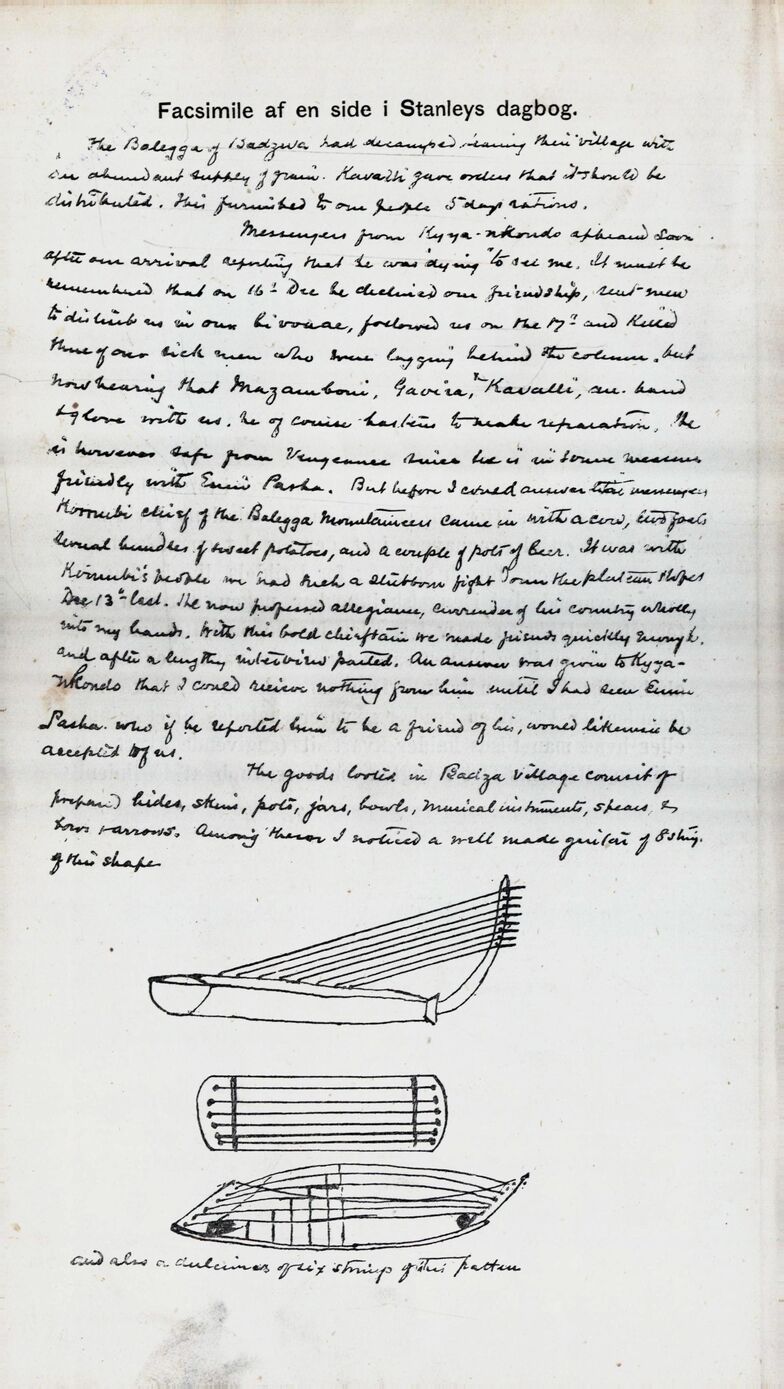 Facsimile af en side i Stanleys dagbog.
The Balegga of Badzwa had decamped leaving their village with
an abundant supply of grain. Kavalli gave orders that it should be
distributed. This furnished to our people 5 days rations.
Messengers from Kyya-nkondo appeared soon
after our arrival reporting that he was "dying" to see me. It must be
remembered that on 16th Dec he declined our friendship, sent men
to disturb us in our bivouac, followed us on the 17th and killed
three of our sick men who were lagging behind the column, but
now hearing that Mazamboni, Gavira, & Kavalli, are hand
& glove with us, he of course hastens to make reparation. He
is however safe from Vengeance since he is in some measure
friendly with Emin Pasha. But before I could answer the messengers
Komubi chief of the Balegga Mountaineers came in with a cow, two goats
several bundles of sweet potatoes, and a couple of pots of beer. It was with
Komubi's people we had such a stubborn fight down the plateau slopes
Dec 13th last. He now professed allegiance, surrender of his country wholly
into my hands. With this bold chieftain we made friends quickly enough.
and after a lengthy interview parted. An answer was given to Kyya-
nkondo that I could receive nothing from him until I had seen Emin
Pasha. who if he reported him to be a friend of his, would likewise be
accepted of us.
The goods looted in Badza village consist of
prepared hides, skins, pots, jars, bowls, musical instruments, spears, &
bows & arrows. Among these I noticed a well made guitar of 8 strings.
of this shape
and also a dulcimer of six strings of this pattern